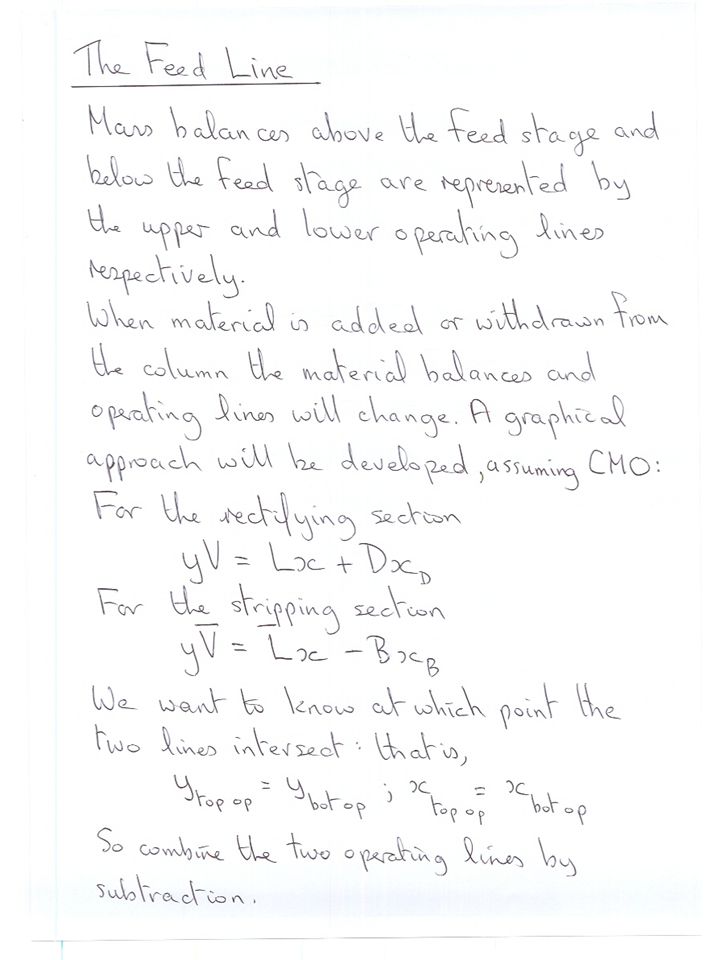 The Feed Line
Mass balances above the feed stage and
below the feed stage are represented by
the upper and lower operating lines
respectively.
When material is added or withdrawn from
the column the material balances and
operating lines will change. A graphical
approach will be developed, assuming CMO:
For the rectifying section
yV = Lx + Dx_D
For the stripping section
yV̅ = L̅x - Bx_B
We want to know at which point the
two lines intersect: that is,
y_top op = y_bot op ; x_top op = x_bot op
So combine the two operating lines by
subtraction.